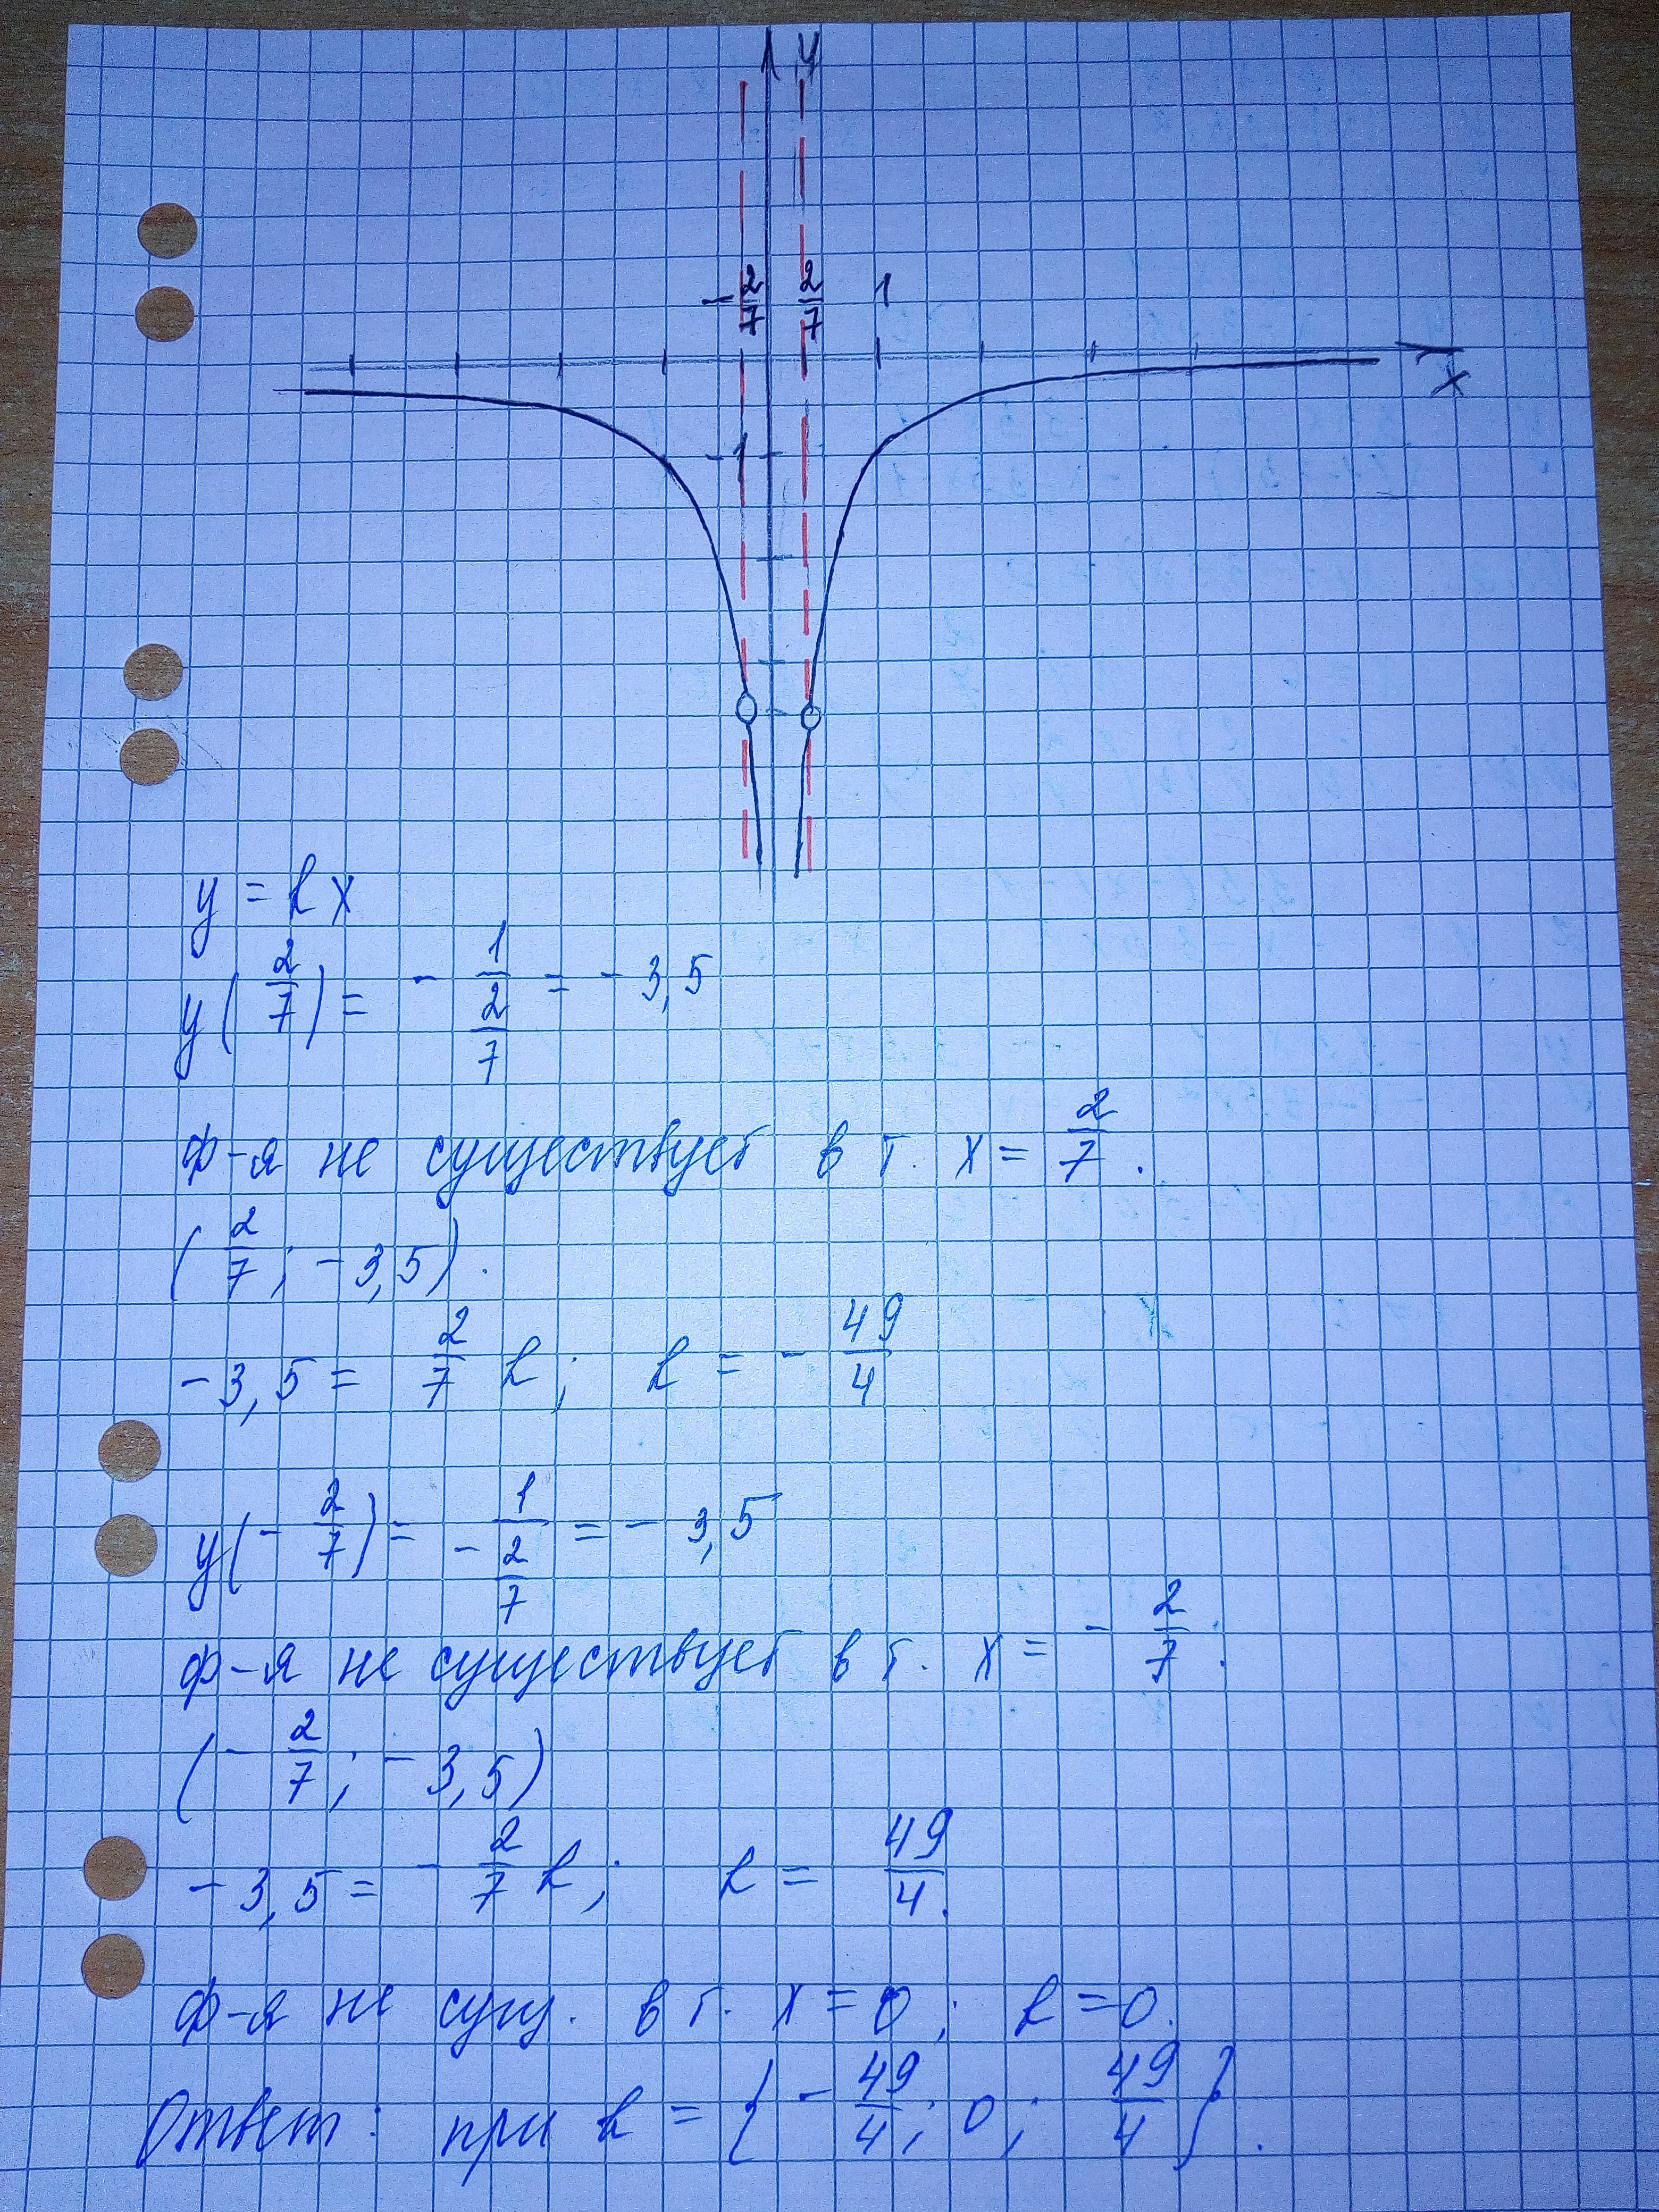 y
-2/7 2/7 1
x
-1
y = kx
y(2/7) = - 1/(2/7) = -3,5
ф-я не существует в т. x = 2/7.
(2/7; -3,5).
-3,5 = 2/7 k; k = - 49/4
y(-2/7) = 1/(-2/7) = -3,5
ф-я не существует в т. x = - 2/7.
(-2/7; -3,5)
-3,5 = - 2/7 k; k = 49/4.
ф-я не сущ. в т. x = 0; k = 0.
Ответ: при k = {- 49/4; 0; 49/4}.